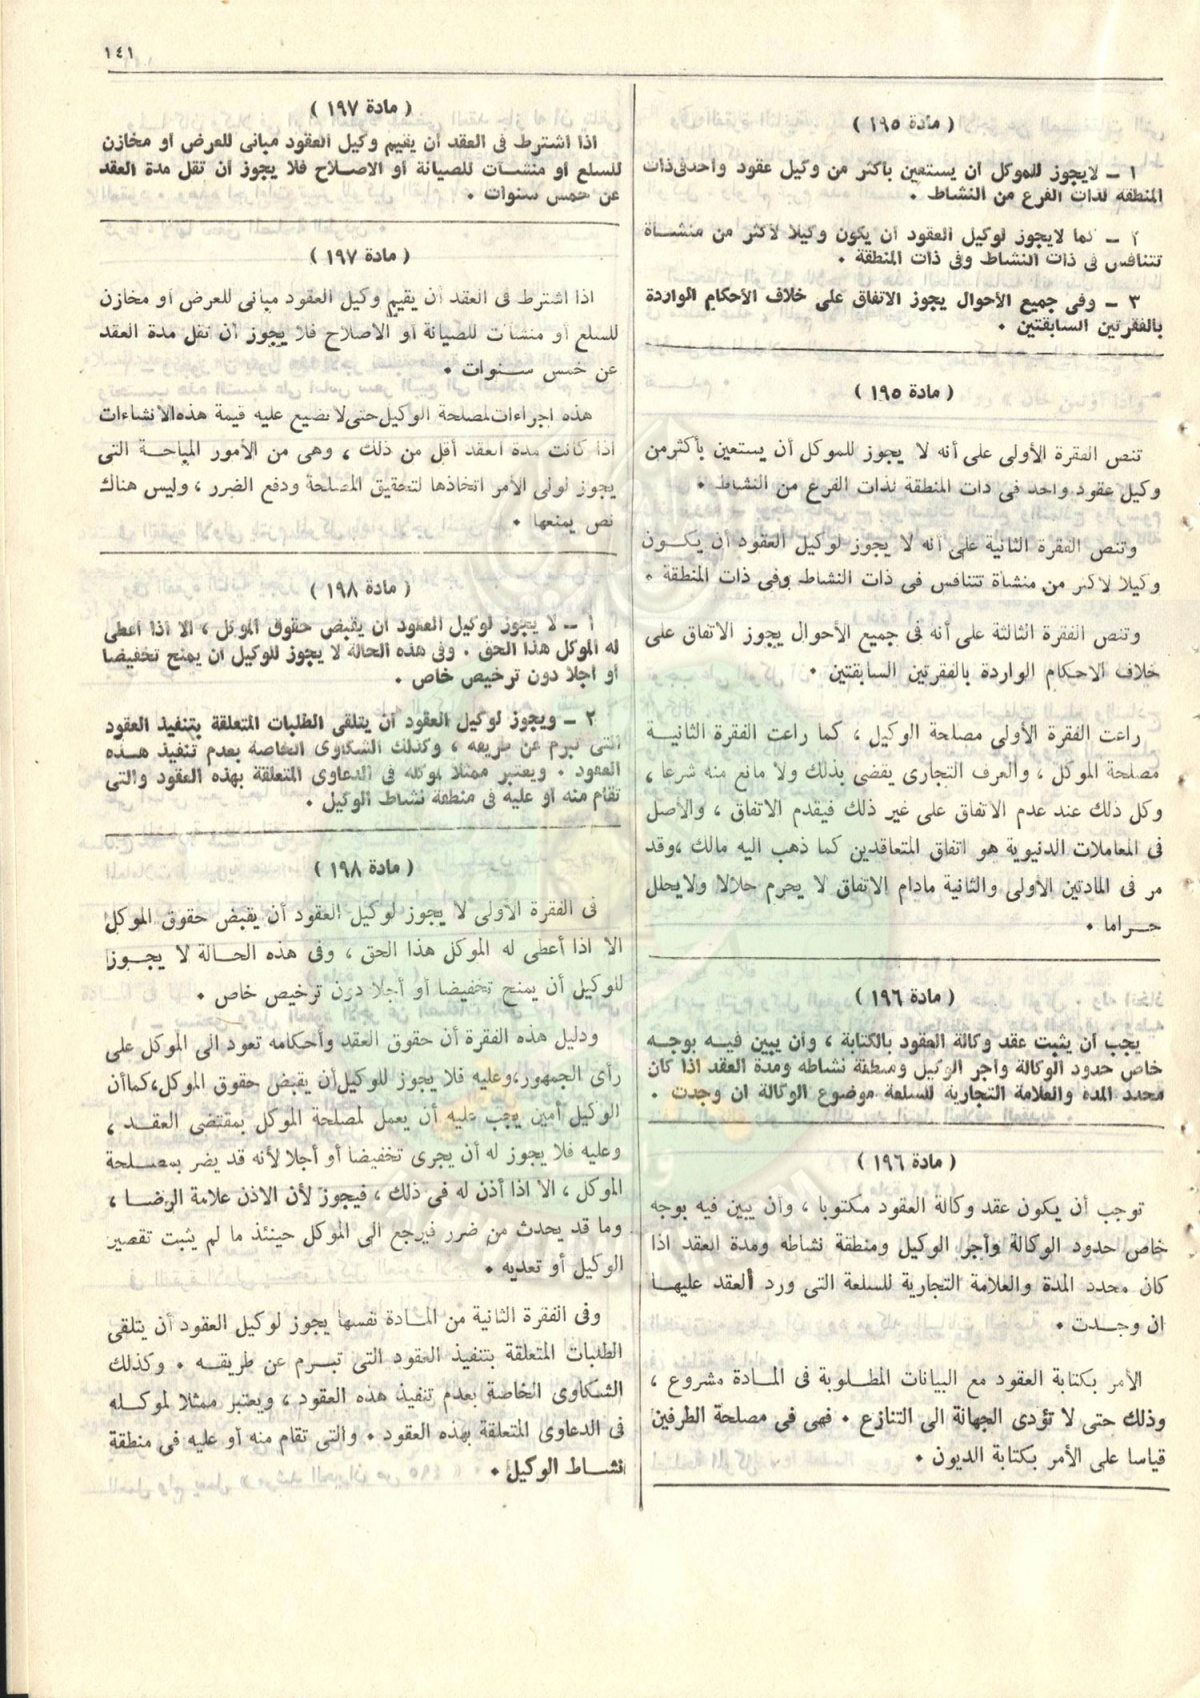 ١٤١
( مادة ١٩٥ )
١ – لايجوز للموكل أن يستعين بأكثر من وكيل عقود واحد فى ذات
المنطقه لذات الفرع من النشاط .
٢ – كما لايجوز لوكيل العقود أن يكون وكيلا لأكثر من منشأة
تتنافس فى ذات النشاط وفى ذات المنطقة .
٣ – وفى جميع الأحوال يجوز الاتفاق على خلاف الأحكام الواردة
بالفقرتين السابقتين .
( مادة ١٩٥ )
تنص الفقرة الأولى على أنه لا يجوز للموكل أن يستعين بأكثر من
وكيل عقود واحد فى ذات المنطقة لذات الفرع من النشاط .
وتنص الفقرة الثانية على أنه لا يجوز لوكيل العقود أن يكون
وكيلا لأكثر من منشأة تتنافس فى ذات النشاط وفى ذات المنطقة .
وتنص الفقرة الثالثة على أنه فى جميع الأحوال يجوز الاتفاق على
خلاف الاحكام الواردة بالفقرتين السابقتين .
راعت الفقرة الأولى مصلحة الوكيل ، كما راعت الفقرة الثانية
مصلحة الموكل ، والعرف التجارى يقضى بذلك ولا مانع منه شرعا ،
وكل ذلك عند عدم الاتفاق على غير ذلك فيقدم الاتفاق ، والأصل
فى المعاملات الدنيوية هو اتفاق المتعاقدين كما ذهب اليه مالك ، وقد
مر فى المادتين الأولى والثانية مادام الاتفاق لا يحرم حلالا ولايحلل
حراما .
( مادة ١٩٦ )
يجب أن يثبت عقد وكالة العقود بالكتابة ، وأن يبين فيه بوجه
خاص حدود الوكالة وأجر الوكيل ومنطقة نشاطه ومدة العقد اذا كان
محدد المده والعلامة التجارية للسلعة موضوع الوكالة ان وجدت .
( مادة ١٩٦ )
توجب أن يكون عقد وكالة العقود مكتوبا ، وأن يبين فيه بوجه
خاص حدود الوكالة وأجر الوكيل ومنطقة نشاطه ومدة العقد اذا
كان محدد المدة والعلامة التجارية للسلعة التى ورد العقد عليها
ان وجدت .
الأمر بكتابة العقود مع البيانات المطلوبة فى المادة مشروع ،
وذلك حتى لا تؤدى الجهالة الى التنازع . فهى فى مصلحة الطرفين
قياسا على الأمر بكتابة الديون .
( مادة ١٩٧ )
اذا اشترط فى العقد أن يقيم وكيل العقود مبانى للعرض أو مخازن
للسلع أو منشآت للصيانة أو الاصلاح فلا يجوز أن تقل مدة العقد
عن خمس سنوات .
( مادة ١٩٧ )
اذا اشترط فى العقد أن يقيم وكيل العقود مبانى للعرض أو مخازن
للسلع أو منشآت للصيانة أو الاصلاح فلا يجوز أن تقل مدة العقد
عن خمس سنوات .
هذه اجراءات لمصلحة الوكيل حتى لا تضيع عليه قيمة هذه الانشاءات
اذا كانت مدة العقد أقل من ذلك ، وهى من الأمور المباحة التى
يجوز لولى الأمر اتخاذها لتحقيق المصلحة ودفع الضرر ، وليس هناك
نص يمنعها .
( مادة ١٩٨ )
١ – لا يجوز لوكيل العقود أن يقبض حقوق الموكل ، الا اذا أعطى
له الموكل هذا الحق . وفى هذه الحالة لا يجوز للوكيل أن يمنح تخفيضا
أو أجلا دون ترخيص خاص .
٢ – ويجوز لوكيل العقود أن يتلقى الطلبات المتعلقة بتنفيذ العقود
التى تبرم عن طريقه ، وكذلك الشكاوى الخاصة بعدم تنفيذ هذه
العقود . ويعتبر ممثلا لموكله فى الدعاوى المتعلقة بهذه العقود والتى
تقام منه أو عليه فى منطقة نشاط الوكيل .
( مادة ١٩٨ )
فى الفقرة الأولى لا يجوز لوكيل العقود أن يقبض حقوق الموكل
الا اذا أعطى له الموكل هذا الحق ، وفى هذه الحالة لا يجوز
للوكيل أن يمنح تخفيضا أو أجلا دون ترخيص خاص .
ودليل هذه الفقرة أن حقوق العقد وأحكامه تعود الى الموكل على
رأى الجمهور ، وعليه فلا يجوز للوكيل أن يقبض حقوق الموكل ، كما أن
الوكيل أمين يجب عليه أن يعمل لمصلحة الموكل بمقتضى العقد ،
وعليه فلا يجوز له أن يجرى تخفيضا أو أجلا لأنه قد يضر بمصلحة
الموكل ، الا اذا أذن له فى ذلك ، فيجوز لأن الاذن علامة الرضا ،
وما قد يحدث من ضرر فيرجع الى الموكل حينئذ ما لم يثبت تقصير
الوكيل أو تعديه .
وفى الفقرة الثانية من المادة نفسها يجوز لوكيل العقود أن يتلقى
الطلبات المتعلقة بتنفيذ العقود التى تبرم عن طريقه . وكذلك
الشكاوى الخاصة بعدم تنفيذ هذه العقود ، ويعتبر ممثلا لموكله
فى الدعاوى المتعلقة بهذه العقود . والتى تقام منه أو عليه فى منطقة
نشاط الوكيل .